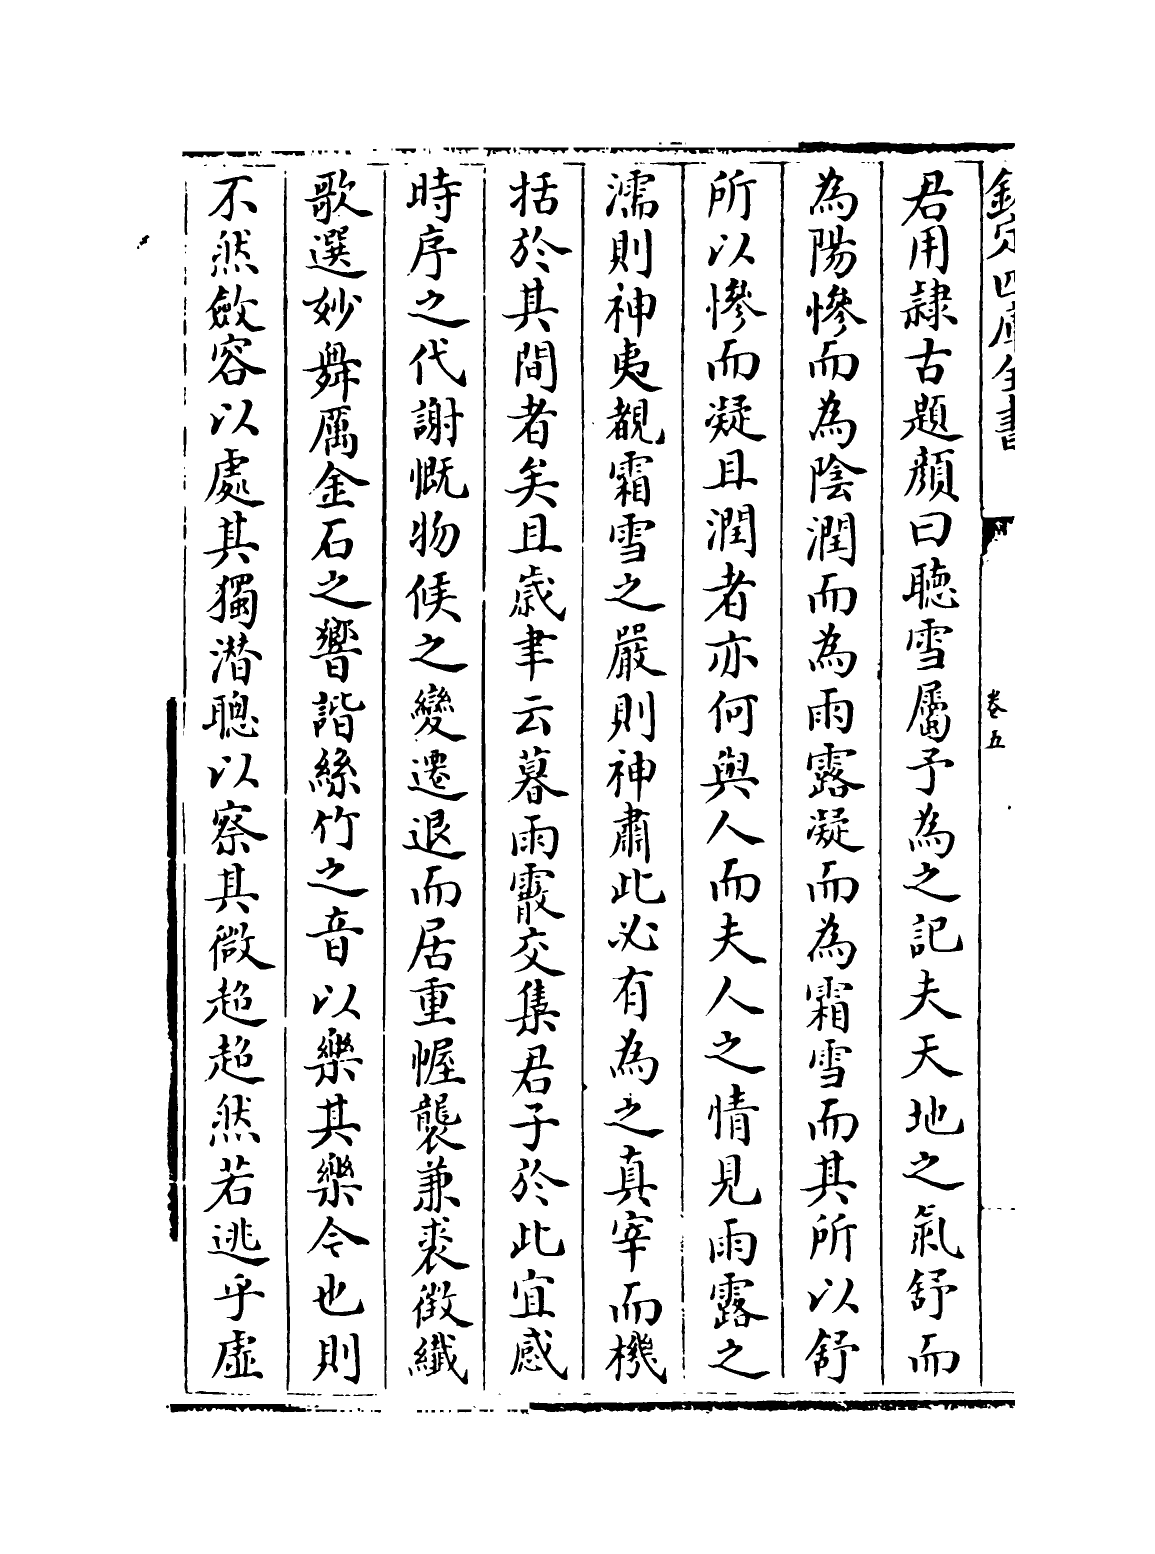 欽定四庫全書
卷五
君用隸古題顔曰聽雪屬予為之記夫天地之氣舒而
為陽慘而為陰潤而為雨露凝而為霜雪而其所以舒
所以慘而凝且潤者亦何與人而夫人之情見雨露之
濡則神夷覩霜雪之嚴則神肅此必有為之真宰而機
括於其間者矣且歲聿云暮雨霰交集君子於此宜感
時序之代謝慨物候之變遷退而居重幄襲兼裘徵纖
歌選妙舞厲金石之響諧絲竹之音以樂其樂今也則
不然斂容以處其獨潜聰以察其微超超然若逃乎虛